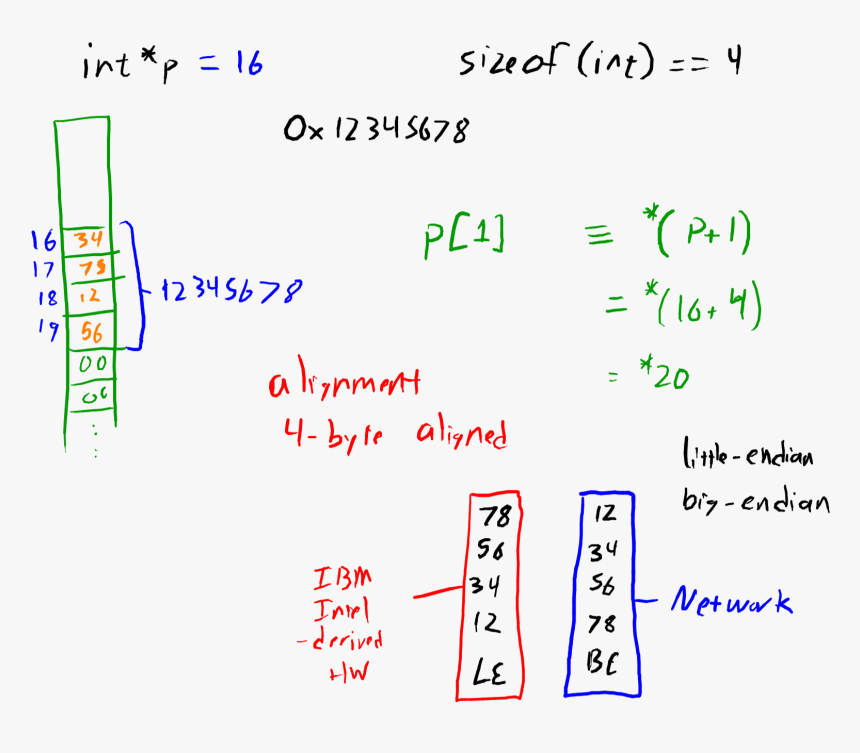 int *p = 16
sizeof(int) == 4
0x12345678
16 34
17 78
18 12
19 56
00
00
12345678
p[1] ≡ *(p+1)
= *(16+4)
= *20
alignment
4-byte aligned
little-endian
big-endian
IBM
Intel
-derived
HW
78
56
34
12
LE
12
34
56
78
BE
Network